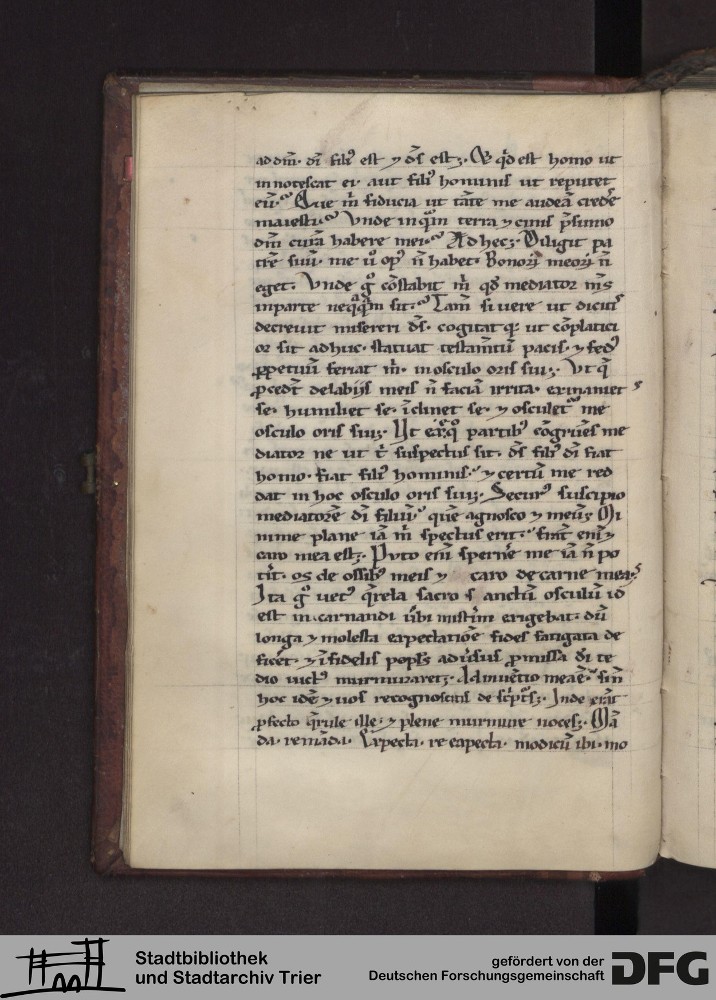 ad dm̄. di filiꝰ est ⁊ ds̄ est. Aut qͥd est homo ut
innotescat ei. aut filiꝰ hominis ut reputet
eū. Que m̄ fiducia ut tāte me audeā credēˀ
maiestati. Vnde inquā terra ⁊ cinis p̄sumo
dm̄ curā habere mei. Ad hec. Diligit pa
trē suū. me ū opꝰ n̄ habet. Bonorū meorū n̄
eget. Vnde gͦ cōstabit m̄ qd̄ mediator mīs
inparte neqͣqͣm sit. Tam̄ si uere ut dicitis
decreuit misereri ds̄. cogitatqꝫ ut cōplaciti
or sit adhuc. statuat testam̄tū pacis. ⁊ fedꝰ
ꝑpetuū feriat m̄. in osculo oris sui. Vt qͣ
ꝓcedūt de labijs meis n̄ faciā irrita. exinaniet
se. humiliet se. īclinet se. ⁊ osculetͬ me
osculo oris sui. Vt ex utͦqꝫ partibꝰ cōgrues me
diator ne ut t̄ suspectus sit. ds̄ filiꝰ di fiat
homo. fiat filiꝰ hominis. ⁊ certū me red
dat in hoc osculo oris sui. Securꝰ suscipio
mediatorē di filiū. quē agnosco ⁊ meū. Mi
nime plane iā m̄ spectus erit. frat̄ eni ⁊
caro mea est. Puto eni spernē me iā n̄ po
tit̄. os de ossibꝰ meis ⁊ caro de carne mea.
Ita gͦ uetꝰ qͣrela sacro s anctū osculū id
est incarnandi ūbi mistīm erigebat. dū
longa ⁊ molesta expectatiōe fides fatigata de
ficet̄. ⁊ īfidelis popls̄ aduīsus ꝓmissa di te
dio uictꝰ murmuraret. Adinuētio mea ē. sm̄
hoc idē ⁊ uos recognoscitis de sc̄ptis. Inde erāt
ꝓfecto qͣrule ille ⁊ plene murmure uoces. Mā
da remāda. Expecta. reexpecta. modicū ibi. mo
Stadtbibliothek
und Stadtarchiv Trier
gefördert von der
Deutschen Forschungsgemeinschaft
DFG